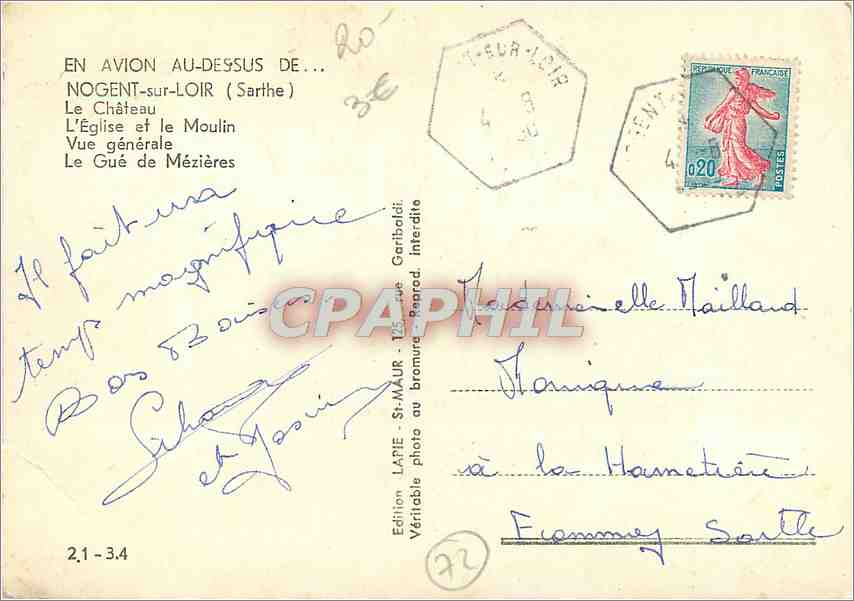 20
3€
EN AVION AU-DESSUS DE...
NOGENT-sur-LOIR (Sarthe)
Le Château
L'Église et le Moulin
Vue générale
Le Gué de Mézières
T-SUR-LOIR
4 8
RÉPUBLIQUE FRANÇAISE
0,20
POSTES
GENT
4 8
Il fait un
temps magnifique
Bons Baisers
et
CPAPHIL
Edition LAPIE - St-MAUR - 125, rue Garibaldi.
Véritable photo au bromure - Reprod. interdite
Mademoiselle Maillard
Monique
à la Hametière
Sarthe
72
2.1 - 3.4